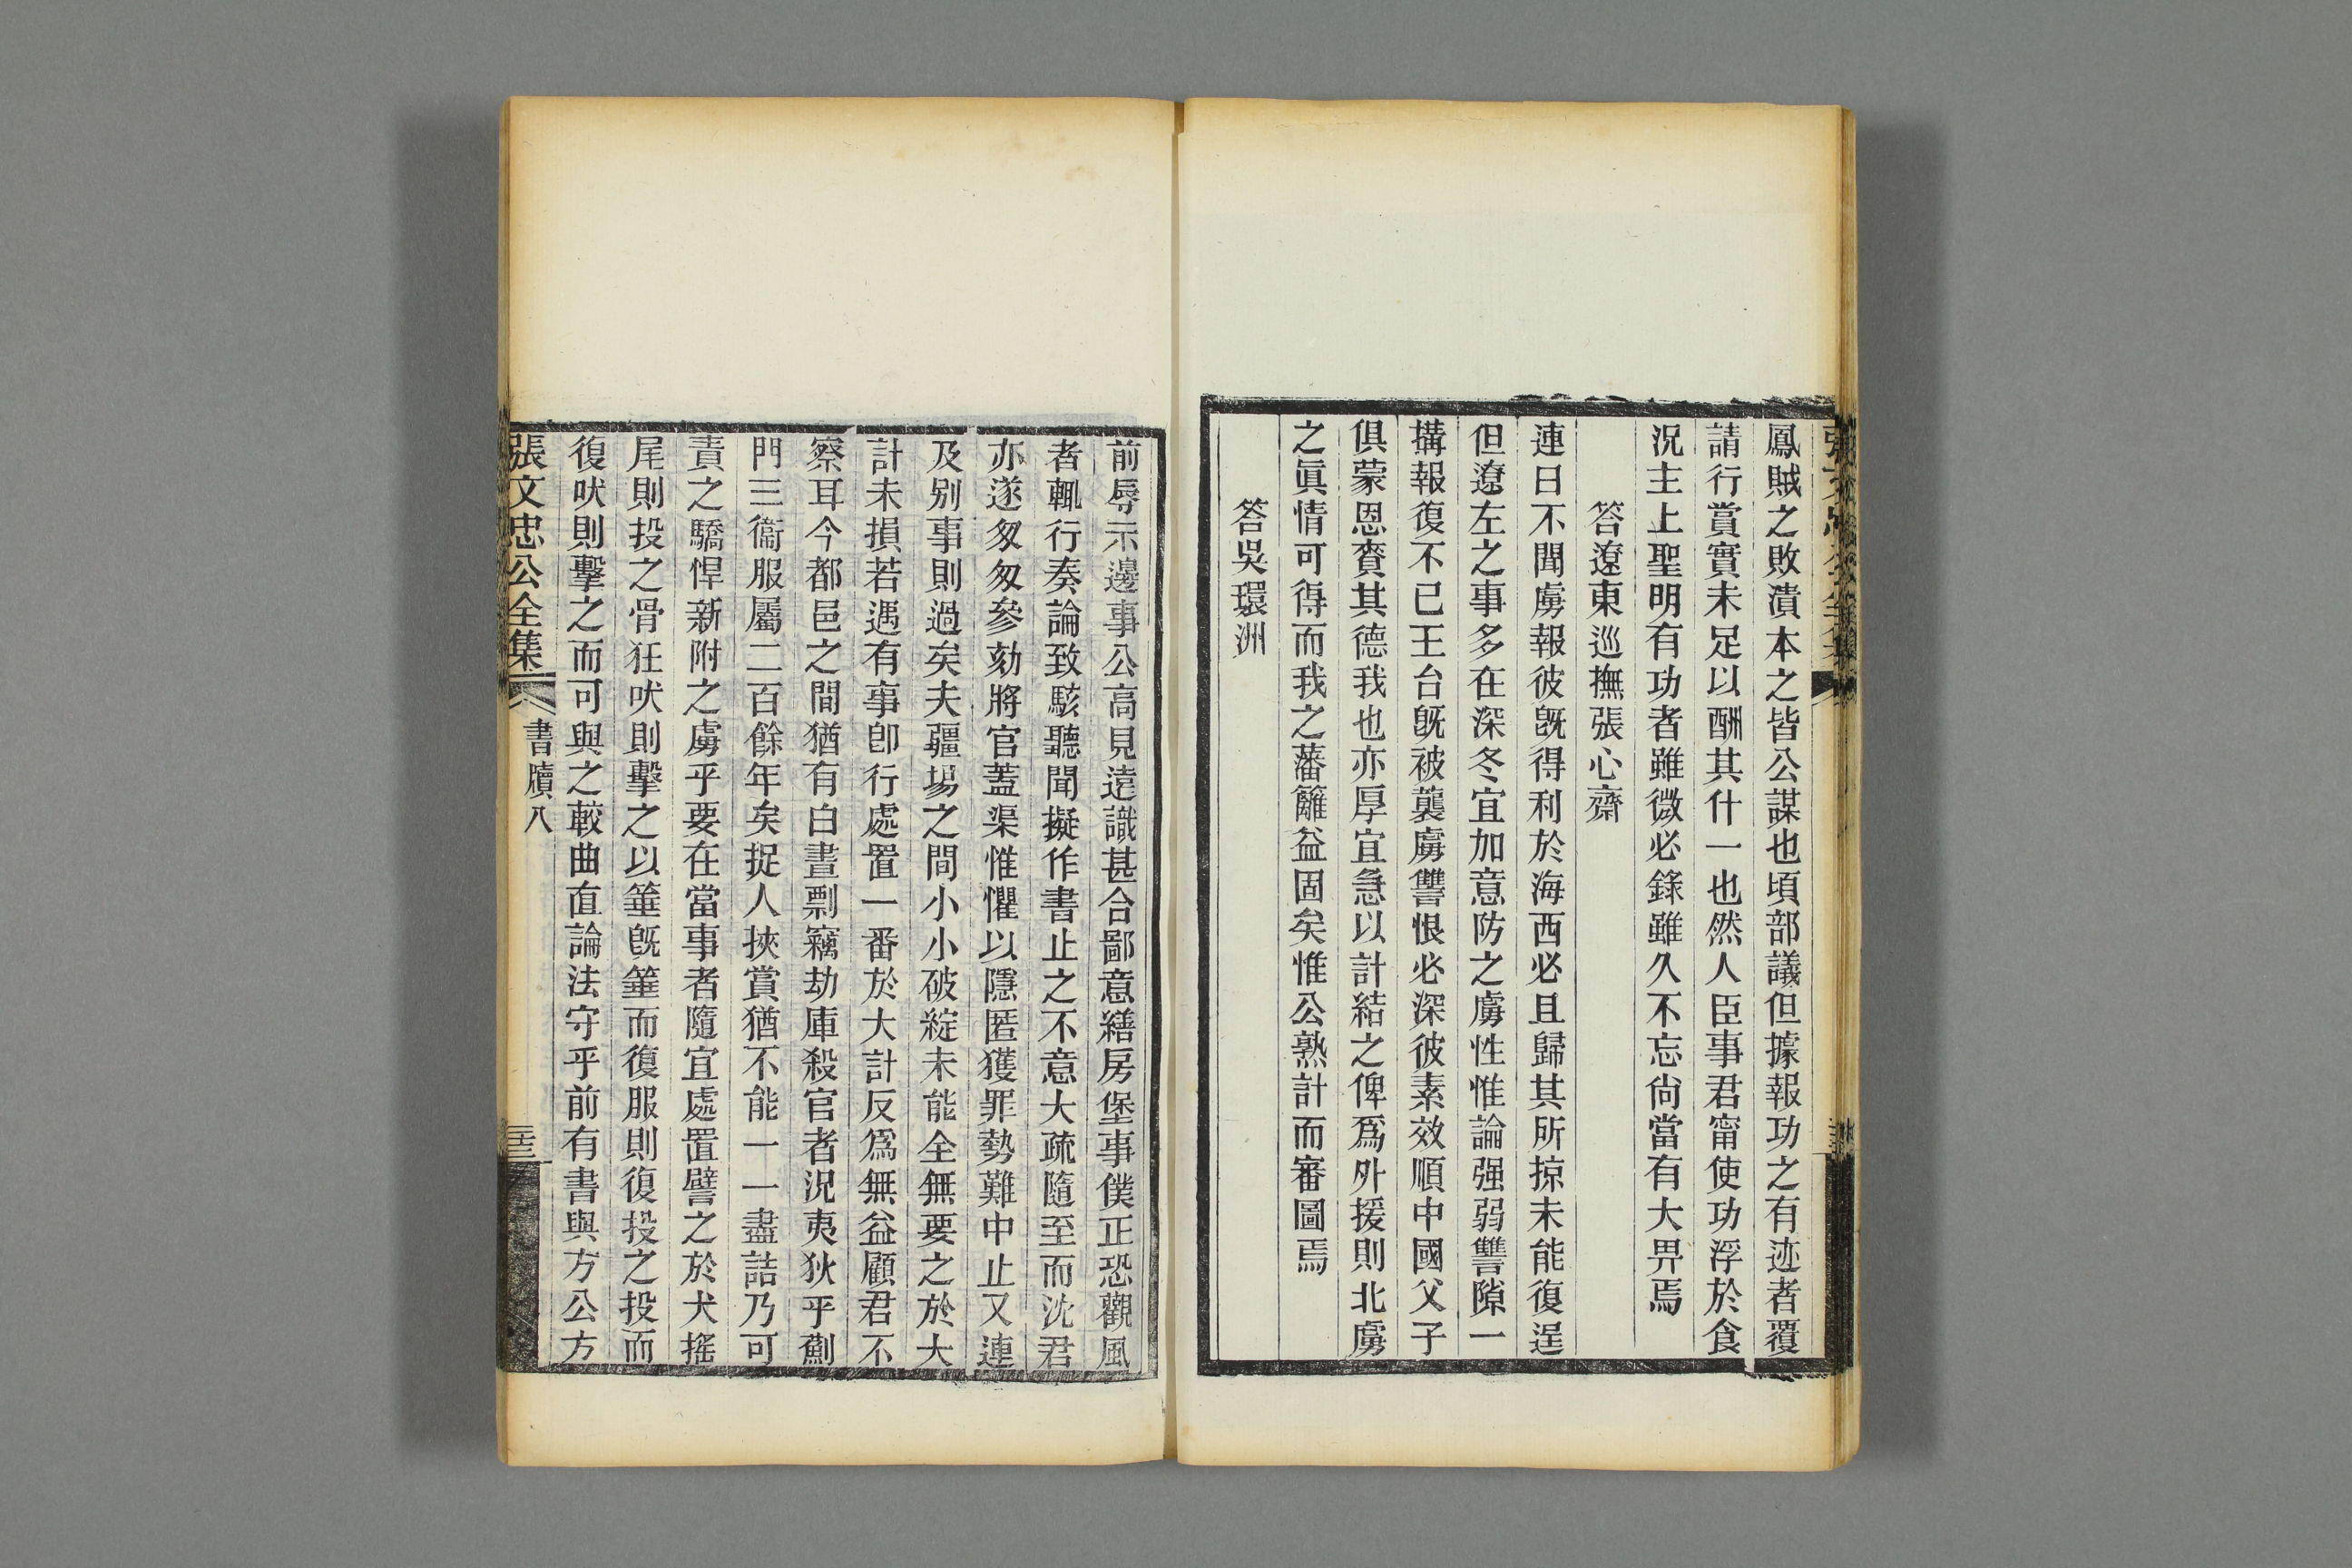 鳳賊之敗潰本之皆公謀也頃部議但據報功之有迹者覆
請行賞實未足以酬其什一也然人臣事君甯使功浮於食
況主上聖明有功者雖微必錄雖久不忘尙當有大畀焉
答遼東巡撫張心齋
連日不聞虜報彼旣得利於海西必且歸其所掠未能復逞
但遼左之事多在深冬宜加意防之虜性惟論强弱讐隙一
搆報復不已王台旣被襲虜讐恨必深彼素效順中國父子
俱蒙恩賚其德我也亦厚宜急以計結之俾爲外援則北虜
之眞情可得而我之藩籬益固矣惟公熟計而審圖焉
答吳環洲
前辱示邊事公高見遠識甚合鄙意繕房堡事僕正恐觀風
者輒行奏論致駭聽聞擬作書止之不意大疏隨至而沈君
亦遂匆匆參劾將官蓋渠惟懼以隱匿獲罪勢難中止又連
及別事則過矣夫疆埸之間小小破綻未能全無要之於大
計未損若遇有事卽行處置一番於大計反爲無益顧君不
察耳今都邑之間猶有白晝剽竊劫庫殺官者況夷狄乎薊
門三衞服屬二百餘年矣捉人挾賞猶不能一一盡詰乃可
責之驕悍新附之虜乎要在當事者隨宜處置譬之於犬搖
尾則投之骨狂吠則擊之以箠旣箠而復服則復投之投而
復吠則擊之而可與之較曲直論法守乎前有書與方公方
張文忠公全集
書牘八